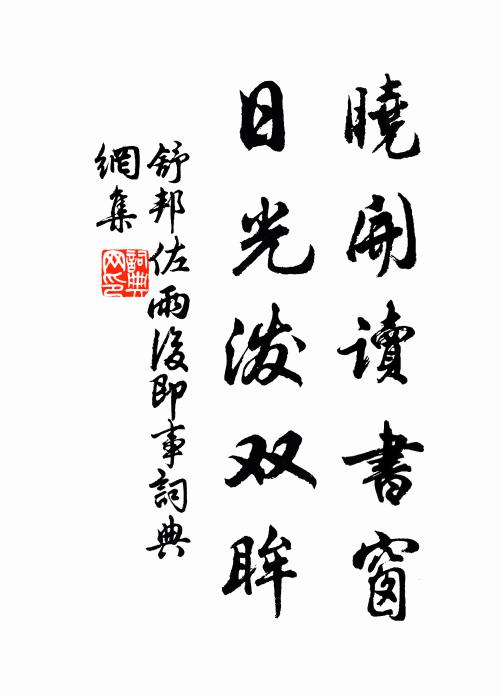 曉開讀書窗
日光潑双眸
舒邦佐雨後即事詞典
網集
詞典
网印